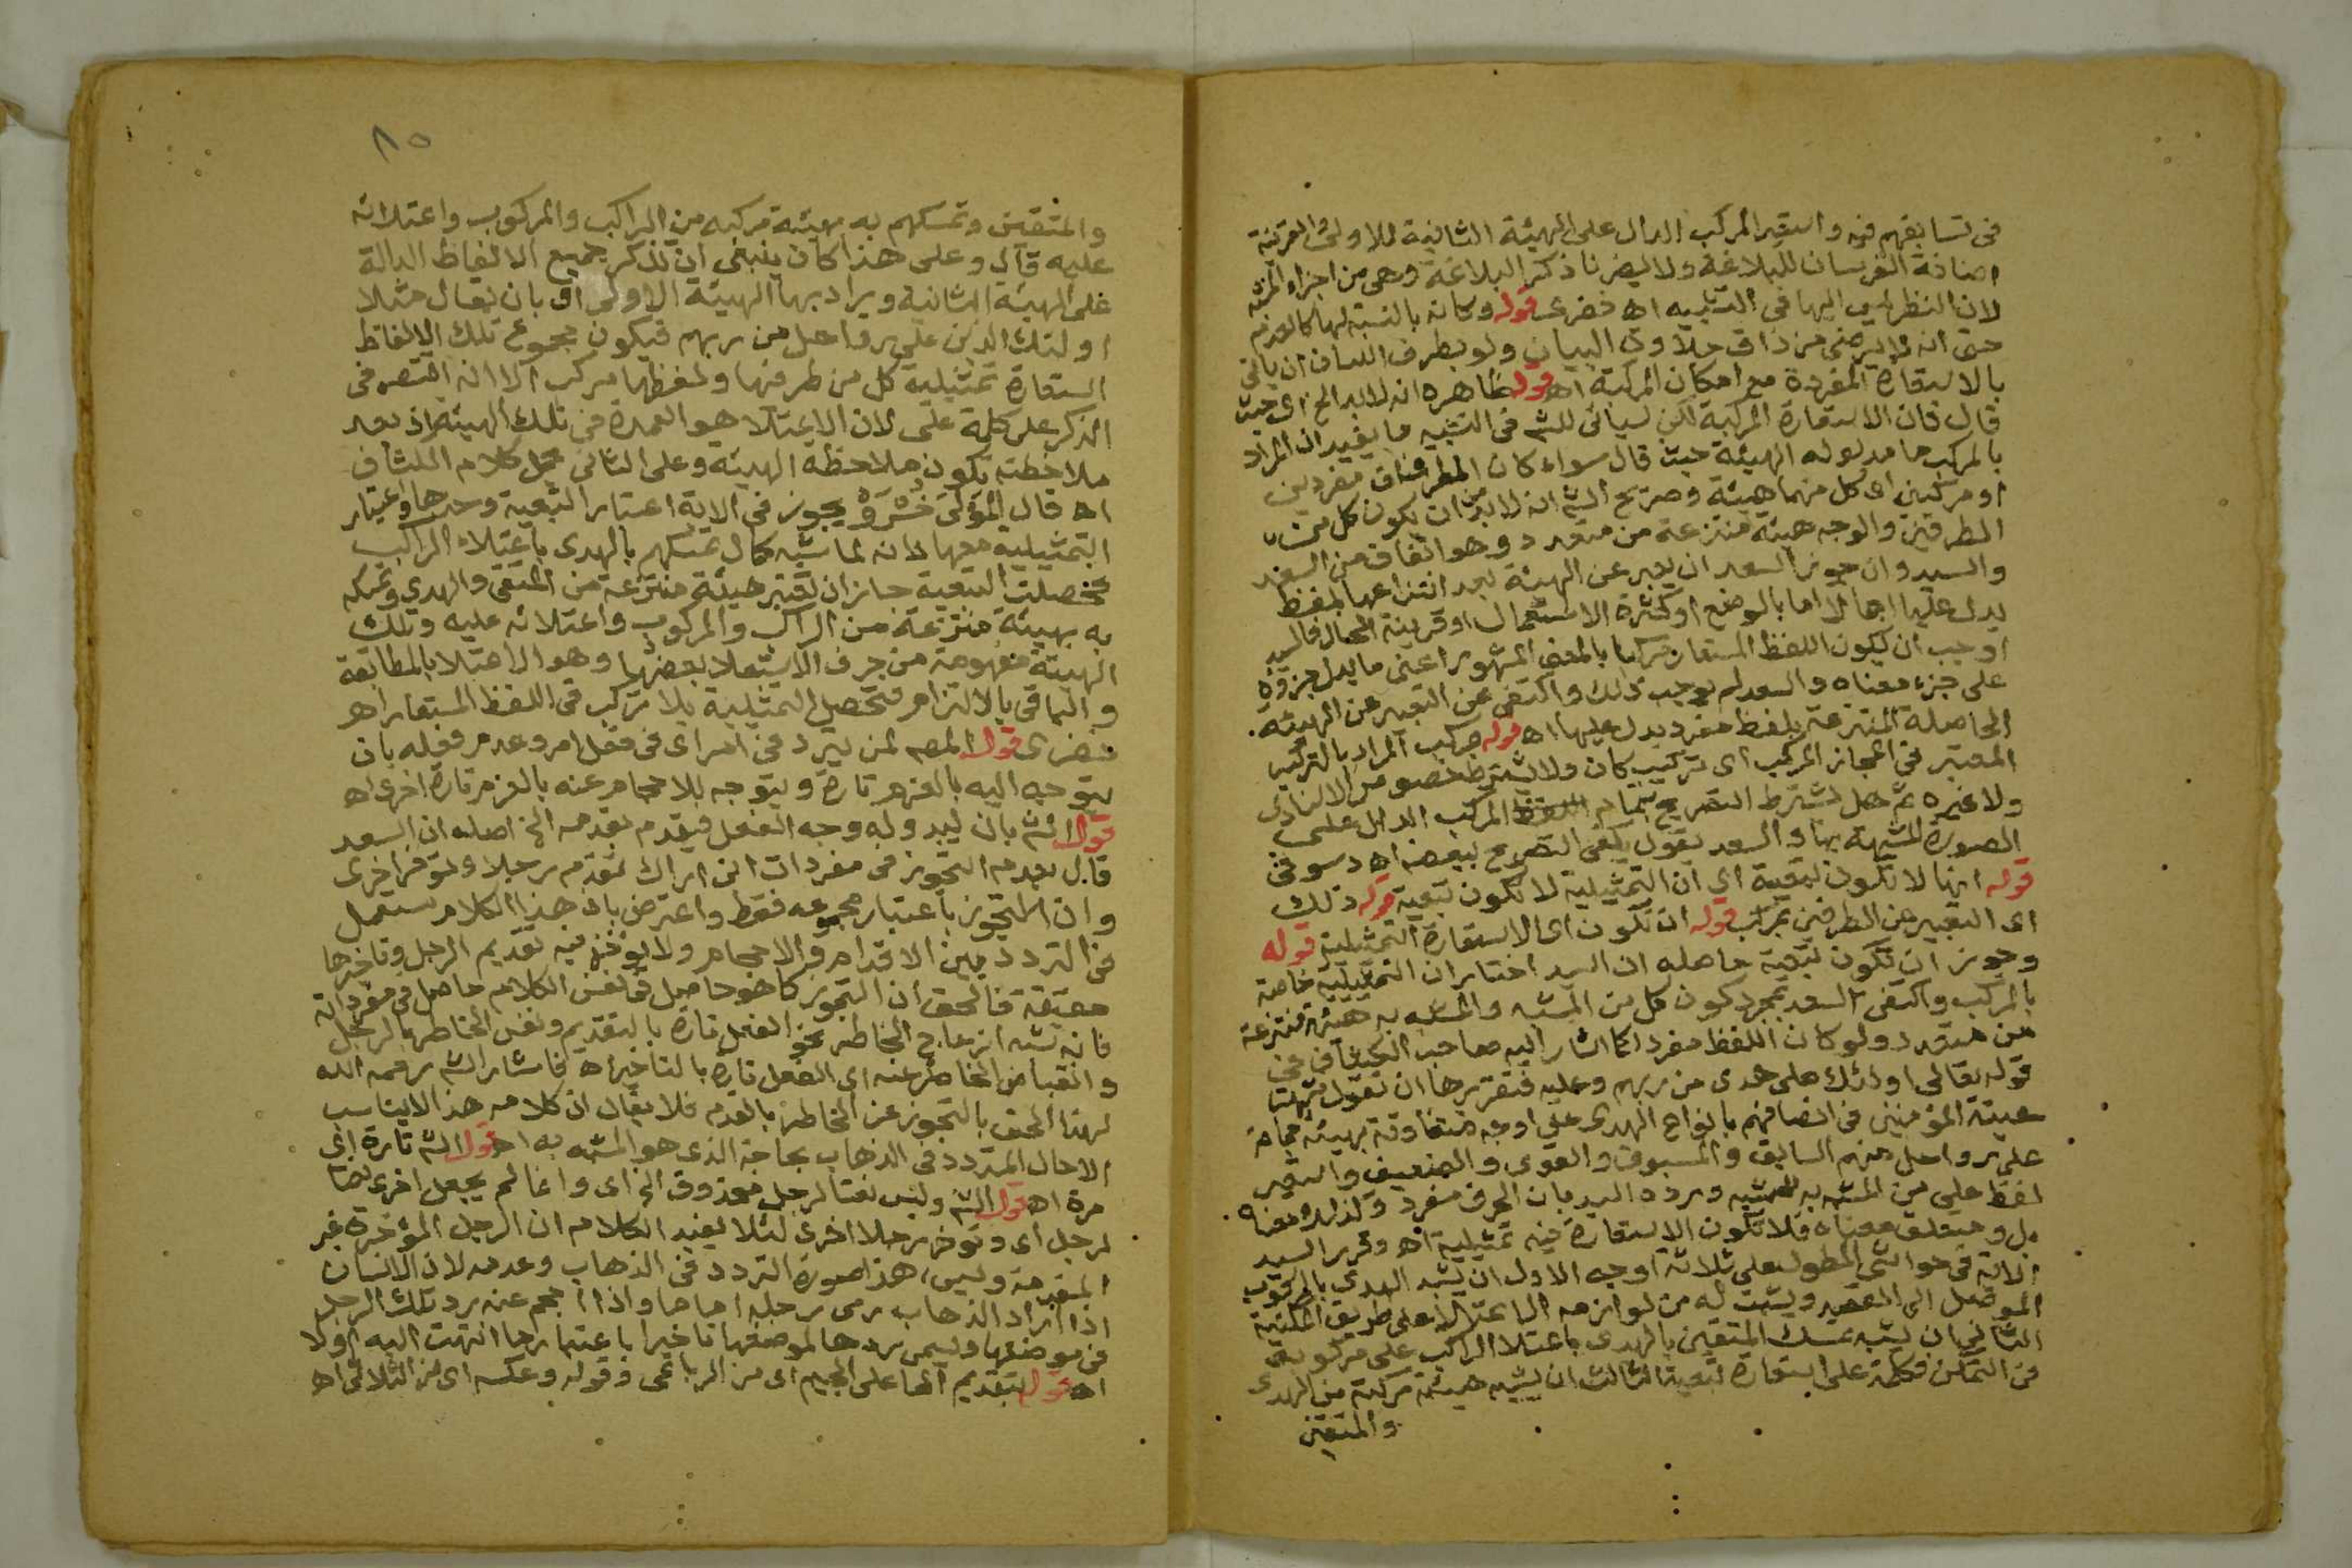 فى تسابقهم فيه واستعير المركب الدال على الهيئة الثانية للاولى والقرينة
اضافة الفرسان للبلاغة ولا يضرنا ذكر البلاغة وهى من اجزاء المشبه
لان النظر ليس اليها فى التشبيه اه خضرى قوله وكانه بالنسبة لها كالعدم
حتى انه لا يرضى من ذاق حلاوة البيان ولو بطرف اللسان ان ياتى
بالاستعارة المفردة مع امكان المركبة اه قوله ظاهره انه لا بد الخ اى حيث
قال فان الاستعارة المركبة لكن سياتى للشم فى التشبيه ما يفيد ان المراد
بالمركب ما مدلوله الهيئة حيث قال سواء كان الطرفان مفردين
او مركبين اى كل منهما هيئة وصريح الشم انه لا بد من ان يكون كل من
الطرفين والوجه هيئة منتزعة من متعدد وهو اتفاق من السعد
والسيد وان جوز السعد ان يعبر عن الهيئة بعد انتزاعها بلفظ
يدل عليها اجمالا اما بالوضع او كثرة الاستعمال او قرينة الحال فالسيد
اوجب ان يكون اللفظ المستعار مركبا بالمعنى المشهور اعنى ما يدل جزؤه
على جزء معناه والسعد لم يوجب ذلك واكتفى عن التعبير عن الهيئة
الحاصلة المنتزعة بلفظ مفرد يدل عليها اه قوله مركب المراد بالتركيب
المعتبر فى المجاز المركب اى تركيب كان ولا يشترط خصوص الاسنادى
ولا غيره ثم هل يشترط التصريح بتمام اللفظ المركب الدال على
الصورة المشبهة بها والسعد يقول يكفى التصريح ببعضه اه دسوقى
قوله انها لا تكون تبعية اى ان التمثيلية لا تكون تبعية قوله ذلك
اى التعبير عن الطرفين بمركب قوله ان تكون اى الاستعارة التمثيلية قوله
وجوز ان تكون تبعية حاصله ان السيد اختار ان التمثيلية خاصة
بالمركب واكتفى السعد بمجرد كون كل من المشبه والمشبه به هيئة منتزعة
من متعدد ولو كان اللفظ مفردا كما اشار اليه صاحب الكشاف فى
قوله تعالى اولئك على هدى من ربهم وعليه فتقريرها ان تقول شبهت
هيئة المؤمنين فى اتصافهم بانواع الهدى على اوجه متفاوتة بهيئة جماعة
على رواحل منهم السابق والمسبوق والقوى والضعيف واستعير
لفظ على من المشبه به للمشبه ورده السيد بان الحرف مفرد وكذلك معناه
بل ومتعلق معناه فلا تكون الاستعارة فيه تمثيلية اه وقرر السيد
الاية فى حواشى المطول على ثلاثة اوجه الاول ان يشبه الهدى بالمركوب
الموصل الى المقصد ويثبت له من لوازمه الاعتلاء على طريق المكنية
الثانى ان يشبه تمسك المتقين بالهدى باعتلا الراكب على مركوبه
فى التمكن فكلمة على استعارة تبعية الثالث ان يشبه هيئة مركبة من الهدى
والمتقين
٨٥
والمتقين وتمسكهم به بهيئة مركبة من الراكب والمركوب واعتلائه
عليه قال وعلى هذا كان ينبغى ان تذكر جميع الالفاظ الدالة
على الهيئة الثانية ويراد بها الهيئة الاولى اى بان يقال مثلا
اولئك الذين على رواحل من ربهم فيكون مجموع تلك الالفاظ
استعارة تمثيلية كل من طرفيها ولفظها مركب الا انه اقتصر فى
الذكر على كلمة على لان الاعتلا هو العمدة فى تلك الهيئة اذ بعد
ملاحظته تكون ملاحظة الهيئة وعلى الثانى حمل كلام الكشاف
اه قال المولى خسرو ويجوز فى الاية اعتبار التبعية وحدها واعتبار
التمثيلية معها لانه لما شبه حال تمسكهم بالهدى باعتلاء الراكب
فحصلت التبعية جاز ان تعتبر هيئة منتزعة من المتقى والهدى وتمسكه
به بهيئة منتزعة من الراكب والمركوب واعتلائه عليه وتلك
الهيئة مفهومة من حرف الاستعلا بعضها وهو الاعتلا بالمطابقة
والباقى بالالتزام فتحصل التمثيلية بلا تركب فى اللفظ المستعار اه
خضرى قوله المصم لمن يتردد فى امر اى فى فعل امر وعدم فعله بان
يتوجه اليه بالعزم تارة ويتوجه للاحجام عنه بالعزم تارة اخرى اه
قوله الشم بان يبدو له وجه الفعل فيقدم بقدمه الخ اصله ان السعد
قال بعدم التجوز فى مفردات انى اراك تقدم رجلا وتوخر اخرى
وان التجوز باعتبار مجموعه فقط واعترض بان هذا الكلام مستعمل
فى التردد بين الاقدام والاحجام ولا يوخذ فيه تقديم الرجل وتاخيرها
حقيقة فالحق ان التجوز كما هو حاصل فى نفس الكلام حاصل فى مفرداته
فانه شبه انزعاج الخاطر نحو الفعل تارة بالتقديم ونفس الخاطر بالرجل
وانقباض الخاطر عنه اى الفعل تارة بالتاخير اه فاشار الشم رحمه الله
لهذا الحق بالتجوز عن الخاطر بالقدم فلا يقال ان كلامه هذا لا يناسب
الا حال المتردد فى الذهاب بحاجة الذى هو المشبه به اه قوله الشم تارة اى
مرة اه قوله الشم وليس نعتا لرجل محذوف الخ اى وانما لم يجعل اخرى نعتا
لرجل اى وتوخر رجلا اخرى لئلا يفيد الكلام ان الرجل المؤخرة غير
المقدمة وليس هذا صورة التردد فى الذهاب وعدمه لان الانسان
اذا اراد الذهاب رمى رجله اماما واذا احجم عنه رد تلك الرجل
فى موضعها ويسمى ردها لموضعها تاخيرا باعتبار ما انتهت اليه اولا
اه قوله بتقديم الحا على الجيم اى من الرباعى وقوله وعكسه اى من الثلاثى اه